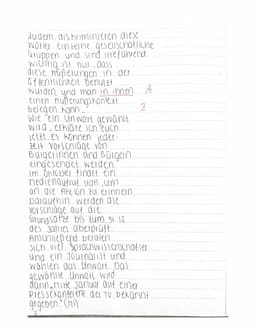 Zudem diskriminieren diese
Wörter einzelne gesellschaftliche
Gruppen und sind irreführend.
wichtig ist nur, dass
diese Äußerungen in der
Öffentlichkeit benutzt
wurden und man in ihnen A
einen Äußerungskontext
belegen kann. 2
Wie ein Unwort gewählt
wird, erkläre ich euch
jetzt. Es können jeder
Zeit Vorschläge von
Bürgerinnen und Bürgern
eingesendet werden
im Oktober findet ein
Medienaufruf statt, um
an die Aktion zu erinnern
daraufhin werden die
Vorschläge auf die
Grundsätze bis zum 31.12
des Jahres überprüft.
Anschließend beraten
sich vier Sprachwissenschaftler
und ein Journalist und
wählen das Unwort. Das
gewählte Unwort wird
dann Mitte Januar auf einer
Pressekonferenz bekannt
gegeben. (111)